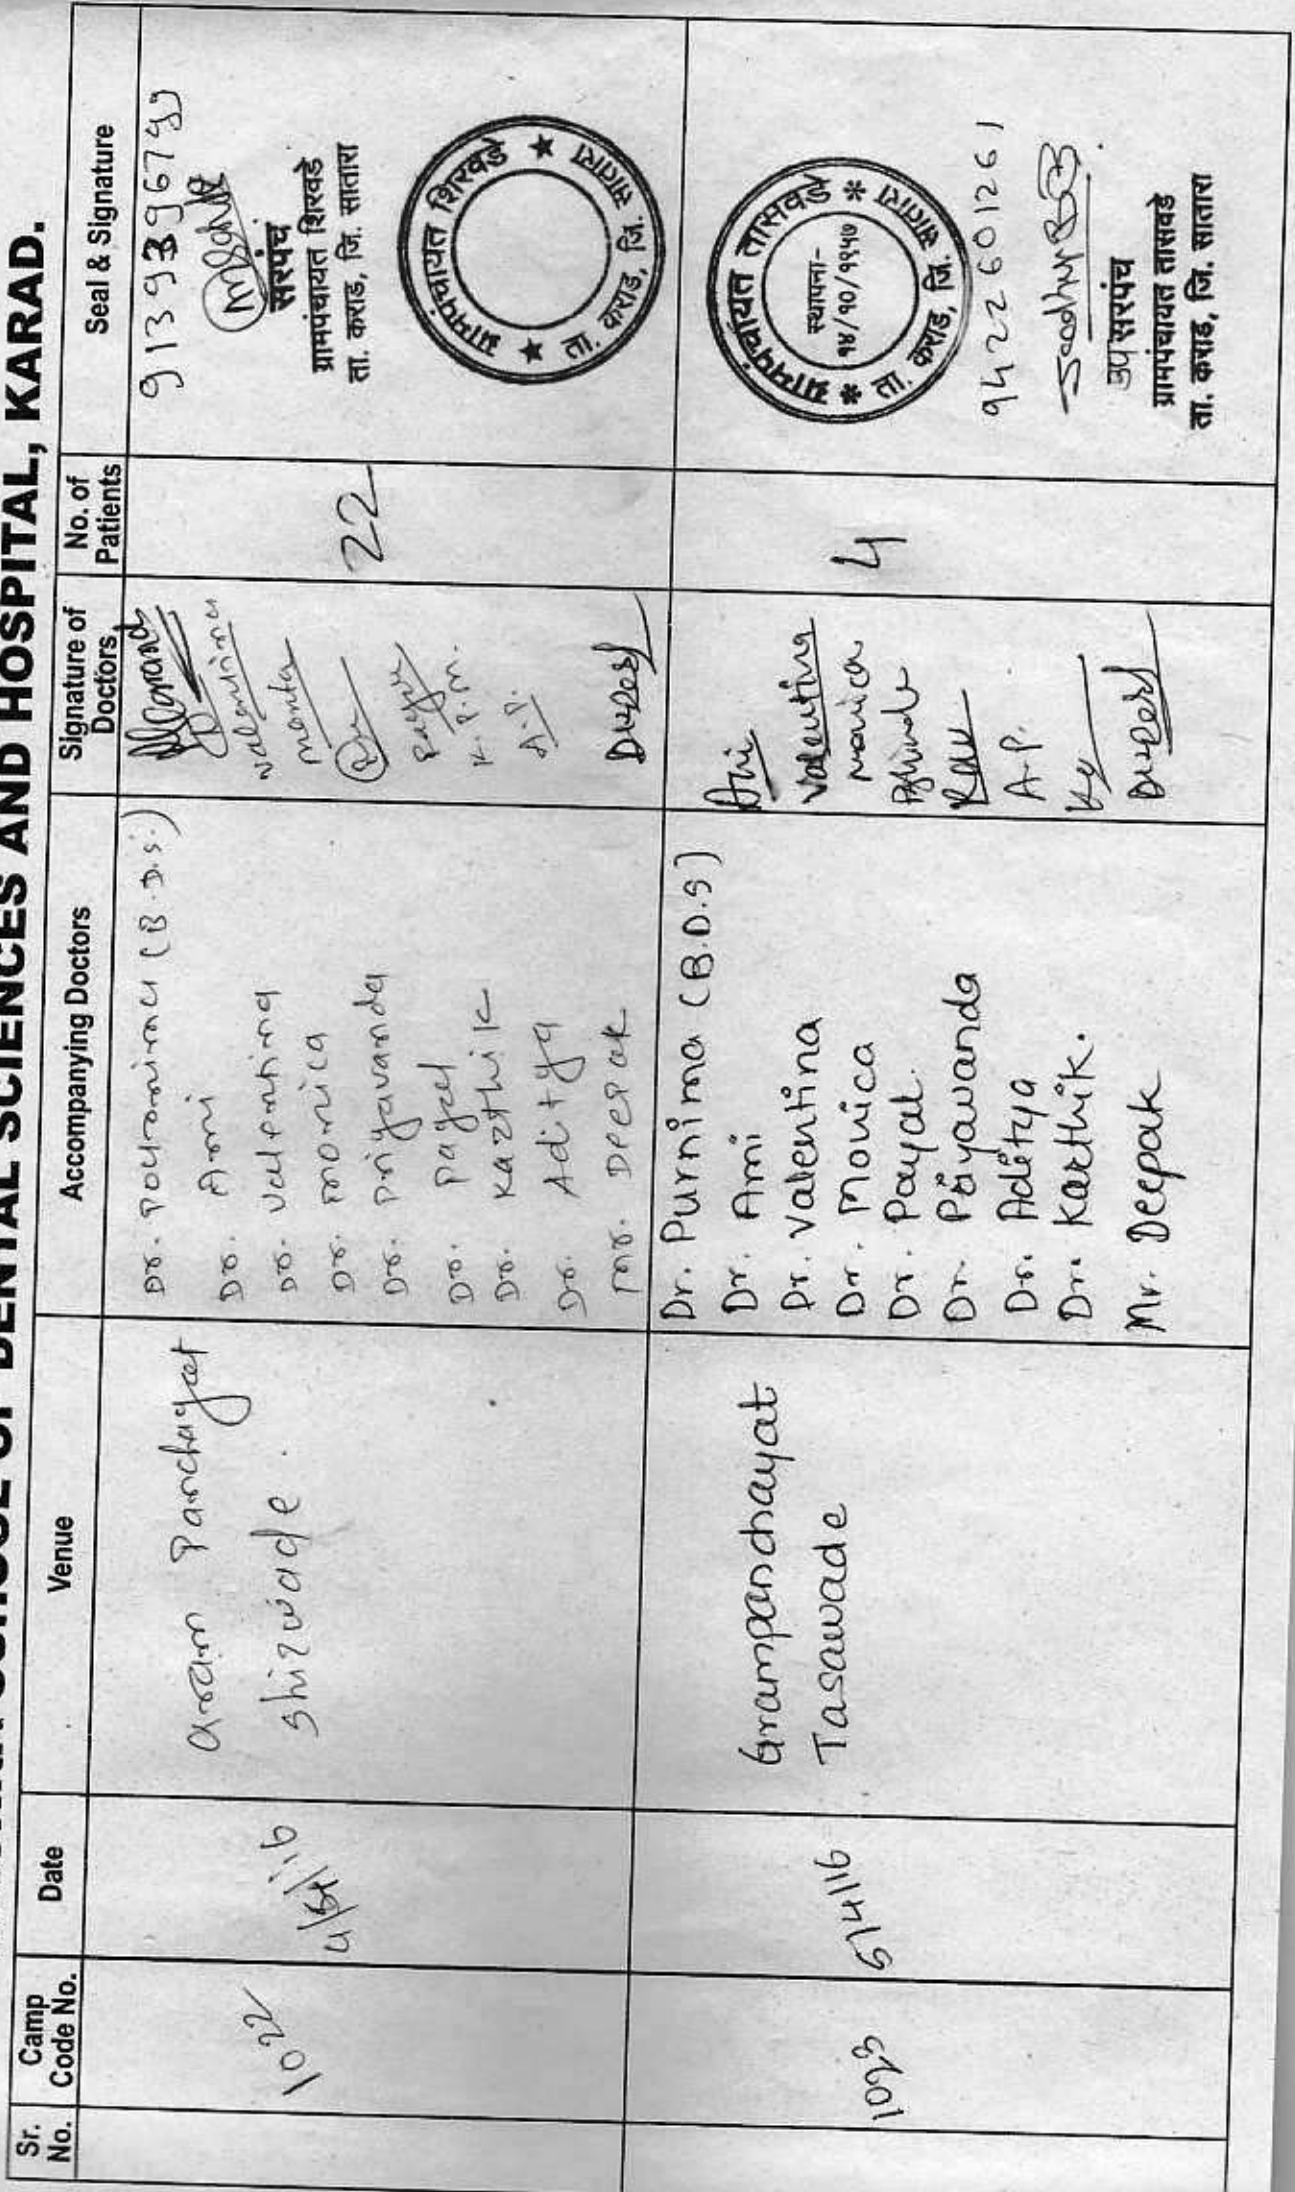 SCHOOL OF DENTAL SCIENCES AND HOSPITAL, KARAD.
Sr. No.
Camp Code No.
Date
Venue
Accompanying Doctors
Signature of Doctors
No. of Patients
Seal & Signature
1022
Gram Panchayat
Shirwade.
Dr. Pournima (B.D.S.)
Dr. Ami
Dr. Valentina
Dr. Monica
Dr. Priyavanda
Dr. Payal
Dr. Karthik
Dr. Aditya
Mr. Deepak
Valentina
K.P.M.
A.P.
22
सरपंच
ग्रामपंचायत शिरवडे
ता. कराड, जि. सातारा
ग्रामपंचायत शिरवडे
ता. कराड, जि. सातारा
1023
6/4/16
Grampanchayat
Tasawade
Dr. Purnima (B.D.S)
Dr. Ami
Dr. Valentina
Dr. Monica
Dr. Payal.
Dr. Priyavanda
Dr. Aditya
Dr. Karthik.
Mr. Deepak
Ami
Valentina
Monica
A.P.
4
ग्रामपंचायत तासवडे
स्थापना-
१४/१०/१९५७
ता. कराड, जि. सातारा
9422601261
उपसरपंच
ग्रामपंचायत तासवडे
ता. कराड, जि. सातारा